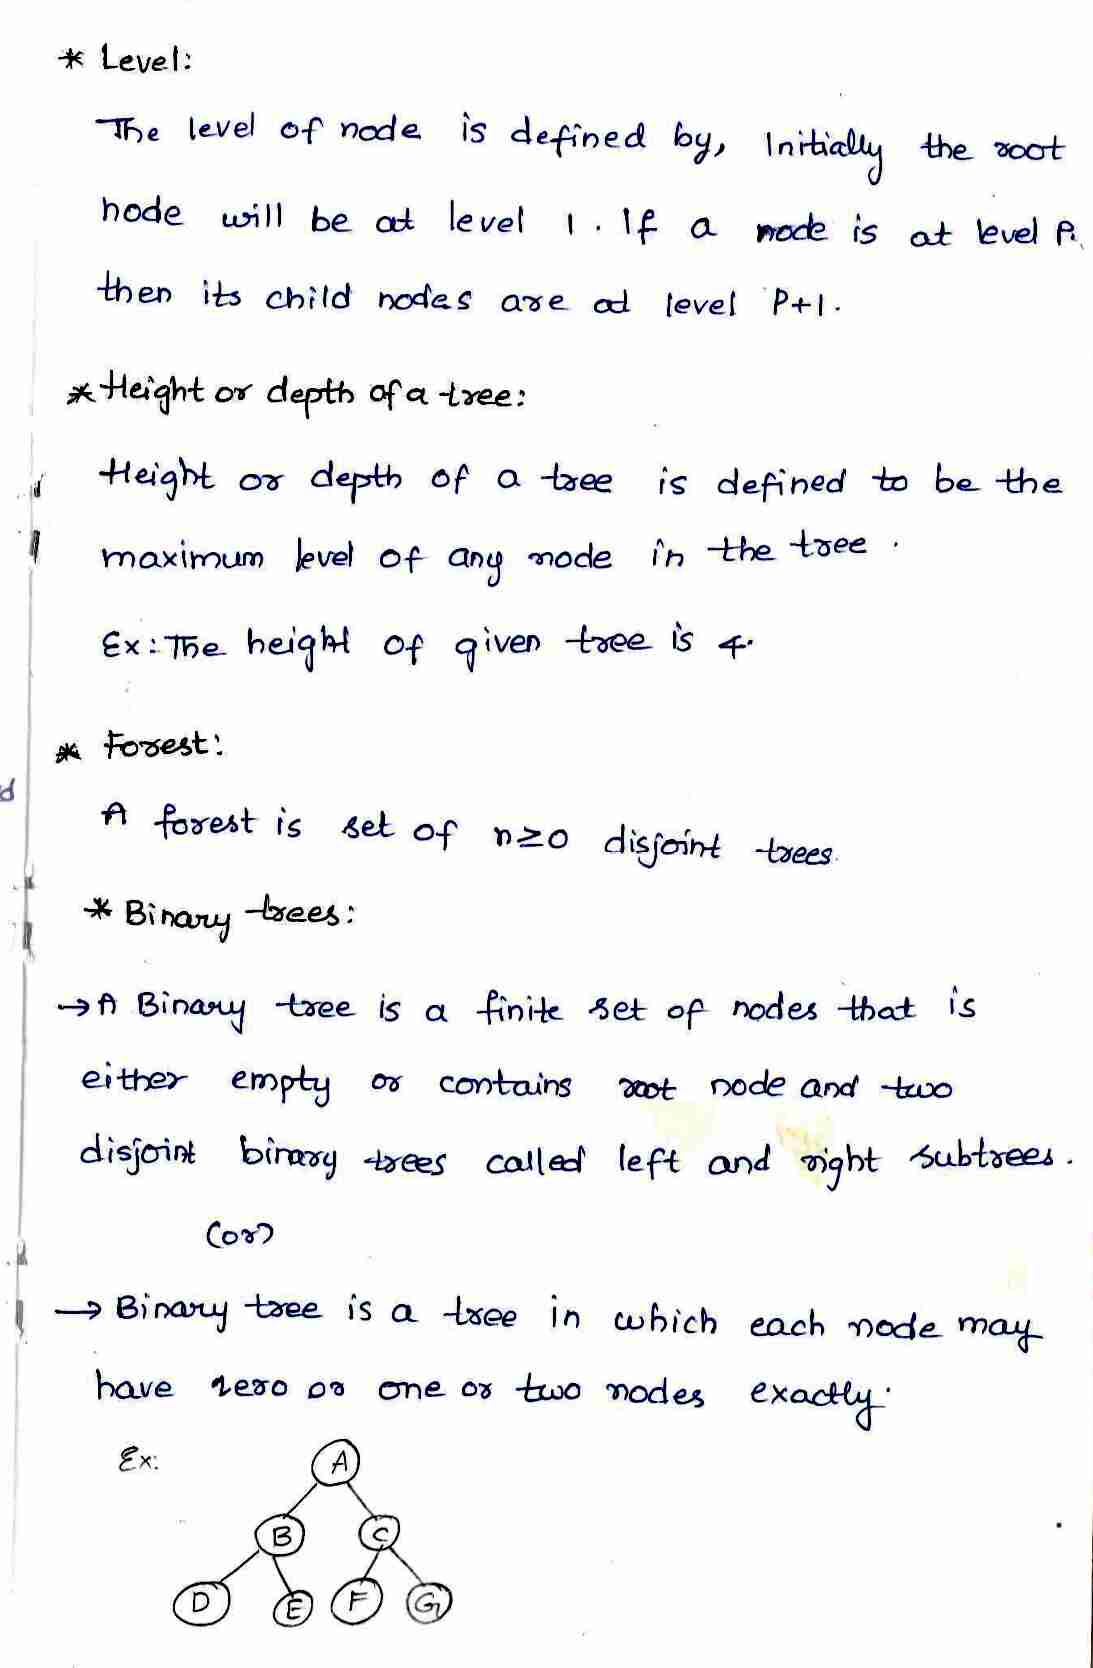 * Level:
The level of node is defined by, Initially the root
node will be at level 1. If a node is at level P.
then its child nodes are at level P+1.
* Height or depth of a tree:
Height or depth of a tree is defined to be the
maximum level of any node in the tree.
Ex: The height of given tree is 4.
* Forest:
A forest is set of n≥0 disjoint trees.
* Binary trees:
→ A Binary tree is a finite set of nodes that is
either empty or contains root node and two
disjoint binary trees called left and right subtrees.
(or)
→ Binary tree is a tree in which each node may
have zero or one or two nodes exactly.
Ex:
A
B C
D E F G